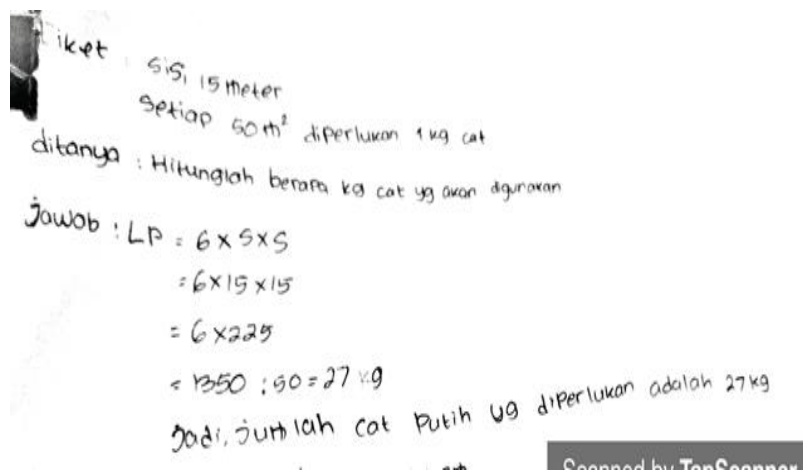 iket : sisi 15 meter
Setiap 50 m² diperlukan 1 kg cat
ditanya : Hitunglah berapa kg cat yg akan digunakan
Jawab : LP = 6 x s x s
= 6 x 15 x 15
= 6 x 225
= 1350 : 50 = 27 kg
Jadi, jumlah cat putih yg diperlukan adalah 27 kg
Scanned by TapScanner